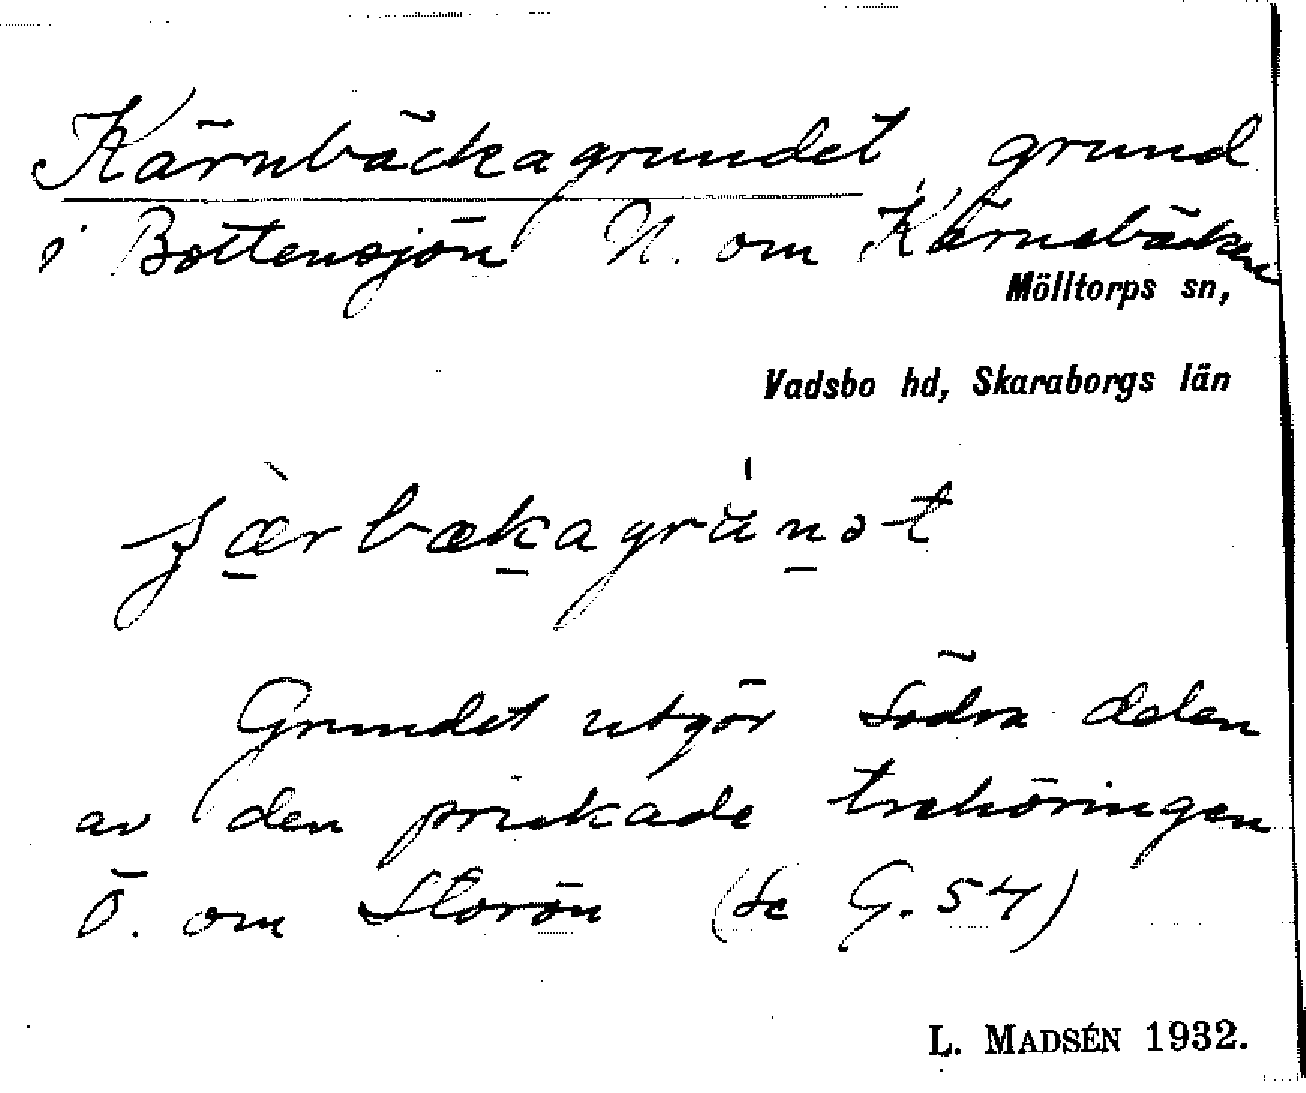 Kärnbäckagrundet grund
i Bottensjön N. om Kärnebäcken
Mölltorps sn,
Vadsbo hd, Skaraborgs län
Grundet utgör Södra delen
av den prickade trehöringen
Ö. om Storön (Se G. 54)
L. MADSÉN 1932.